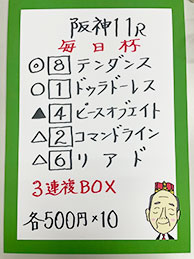 阪神11R
毎日杯
◎8テンダンス
○1ドゥラドーレス
▲4ピースオブエイト
△2コマンドライン
△6リアド
3連複BOX
各500円×10